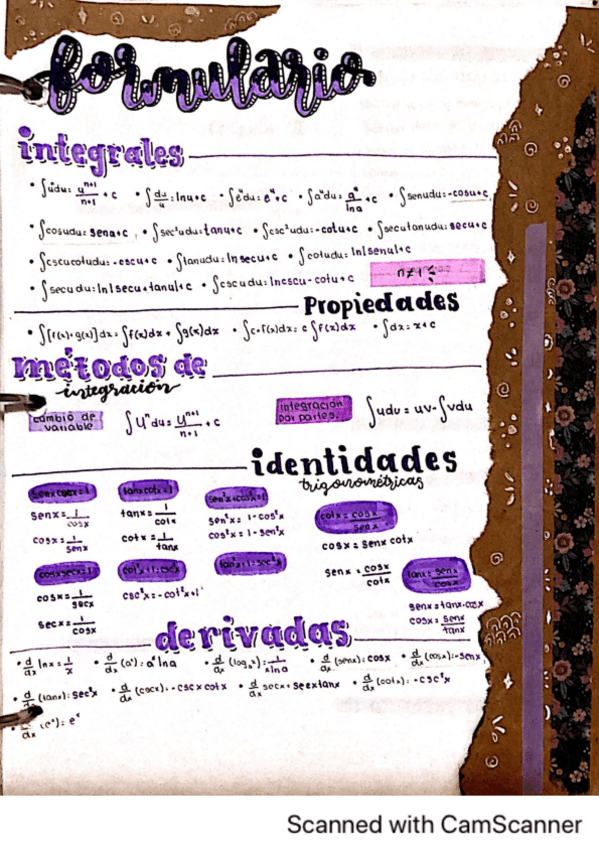 formulario
integrales
• ∫uⁿdu = uⁿ⁺¹/n+1 + c • ∫du/u = lnu+c • ∫eᵘdu = eᵘ+c • ∫aᵘdu = aᵘ/lna + c • ∫senudu = -cosu+c
∫cosudu = senu+c • ∫sec²udu = tanu+c • ∫csc²udu = -cotu+c • ∫secutanudu = secu+c
• ∫cscucotudu = -cscu+c • ∫tanudu = lnsecu+c • ∫cotudu = ln|senu|+c
• ∫secudu = ln|secu+tanu|+c • ∫cscudu =
Propiedades
• ∫c·f(x)dx = c∫f(x)dx • ∫dx = x+c
métodos de
integración
cambio de
variable
∫uⁿdu = uⁿ⁺¹/n+1 + c
integración
por partes.
∫udu = uv-∫vdu
identidades
trigonométricas
senx cscx=1 tanxcotx=1 sen²x+cos²x=1 cotx = cosx/senx
senx = 1/cscx tanx = 1/cotx sen²x = 1-cos²x
cosx = senx cotx
cotx = 1/tanx cos²x = 1-sen²x
cosxsecx=1 cot²x+1=csc²x tan²x+1=sec²x senx = cosx/cotx tanx = senx/cosx
cosx = 1/secx csc²x = -cot²x+1
secx = 1/cosx senx = tanx·cosx
cosx = senx/tanx
derivadas
• d/dx lnx = 1/x • d/dx (aˣ) = aˣ lna • d/dx = 1/xlna • d/dx (senx) = cosx • d/dx (cosx) = -senx
• d/dx (tanx) = sec²x • d/dx = -cscx cotx • d/dx secx = secxtanx • d/dx (cotx) = -csc²x
d/dx (eˣ) = eˣ
Scanned with CamScanner